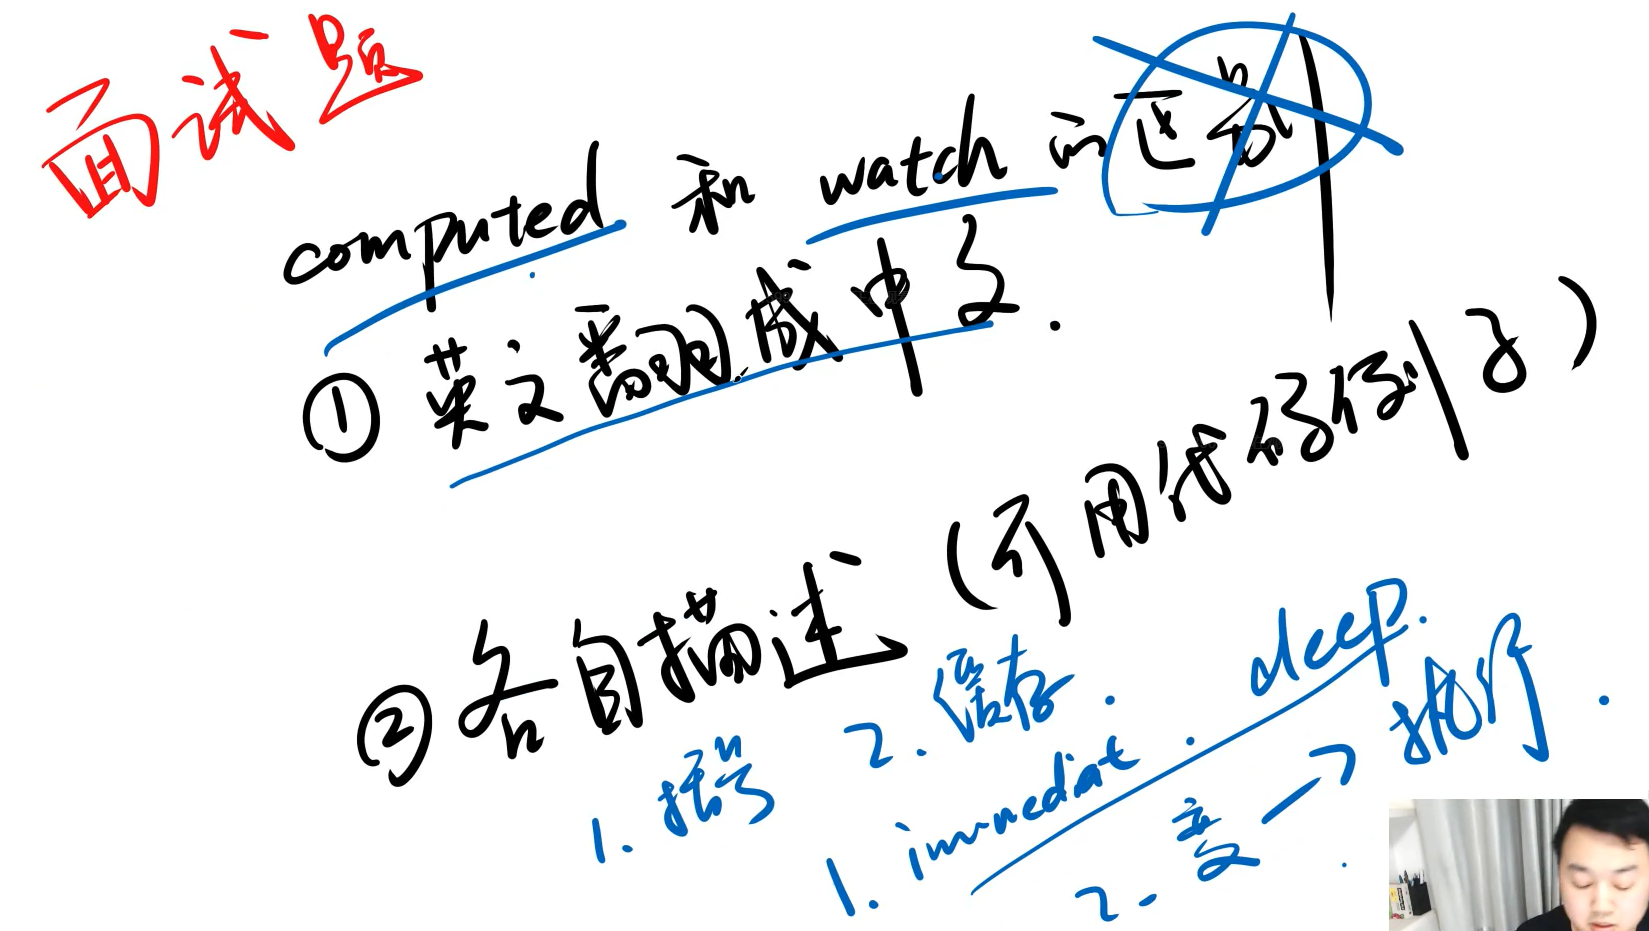 面试题
computed 和 watch 的区别
① 英文翻译成中文.
② 各自描述 (可用代码例子)
1. 括号 2. 缓存.
1. immediat. deep.
2. 变 → 执行.